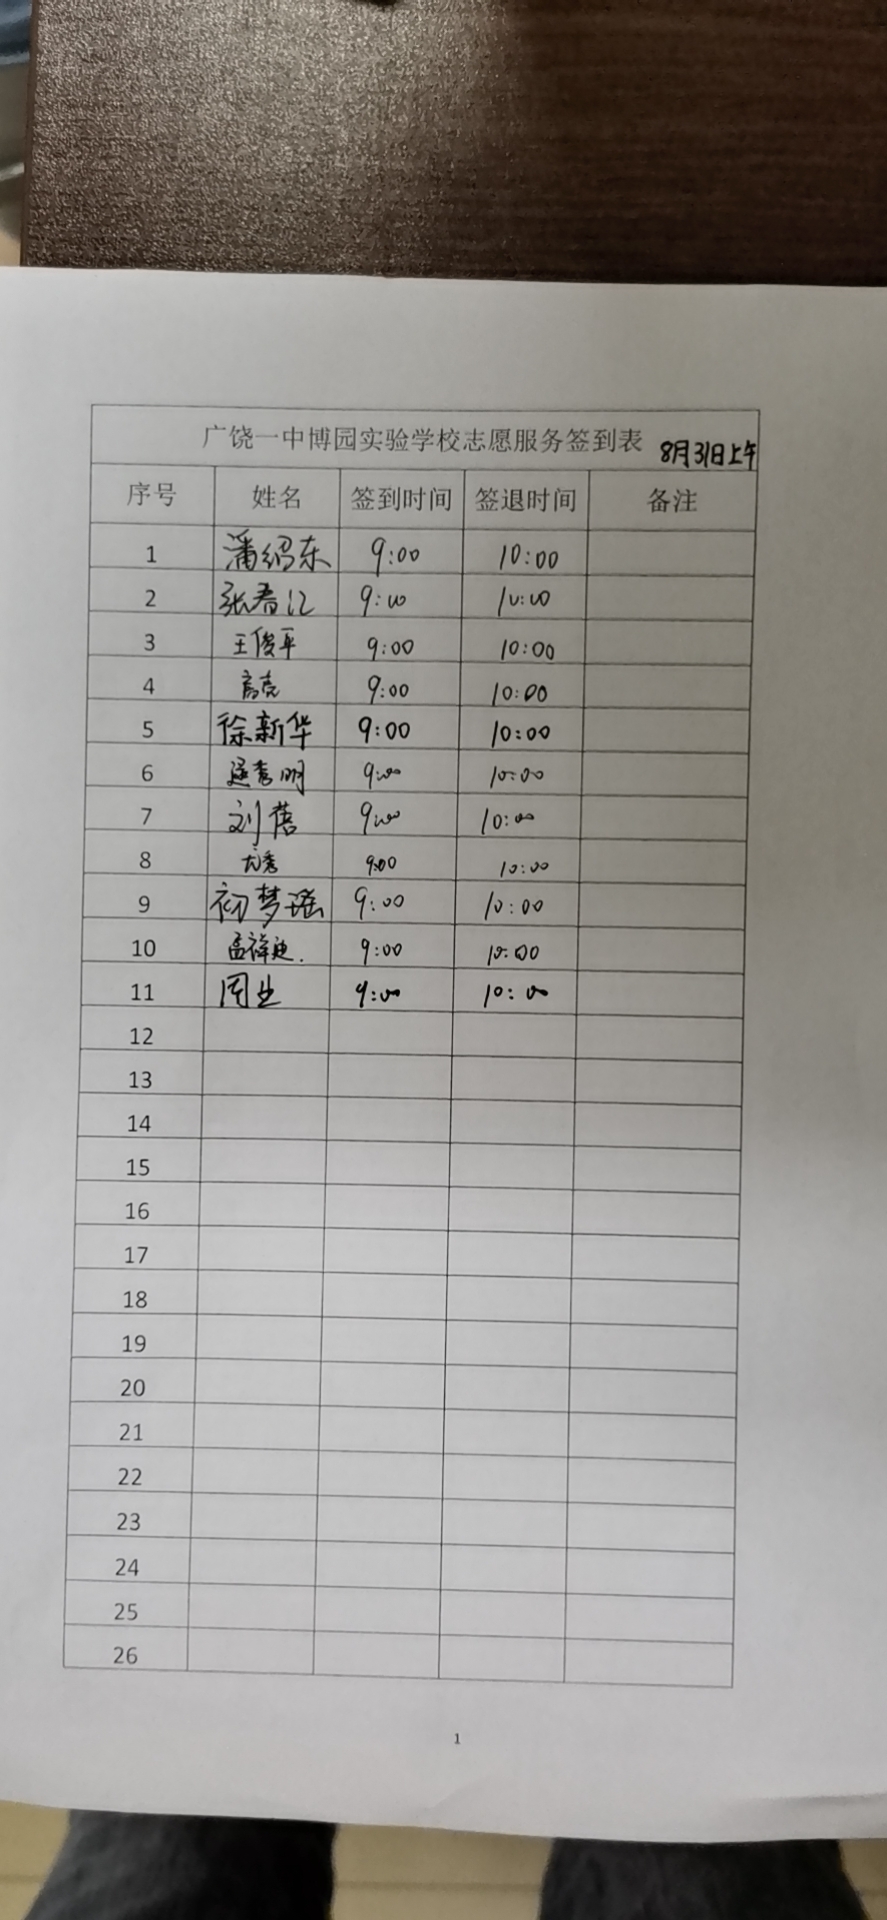 广饶一中博园实验学校志愿服务签到表 8月31日上午
序号 姓名 签到时间 签退时间 备注
1 潘绍东 9:00 10:00
2 张春江 9:00 10:00
3 王俊平 9:00 10:00
4 高亮 9:00 10:00
5 徐新华 9:00 10:00
6 明 9:00 10:00
7 刘蓓 9:00 10:00
8 尤秀 9:00 10:00
9 初梦瑶 9:00 10:00
10 孟祥迪. 9:00 10:00
11 周生 9:00 10:00
12
13
14
15
16
17
18
19
20
21
22
23
24
25
26
1